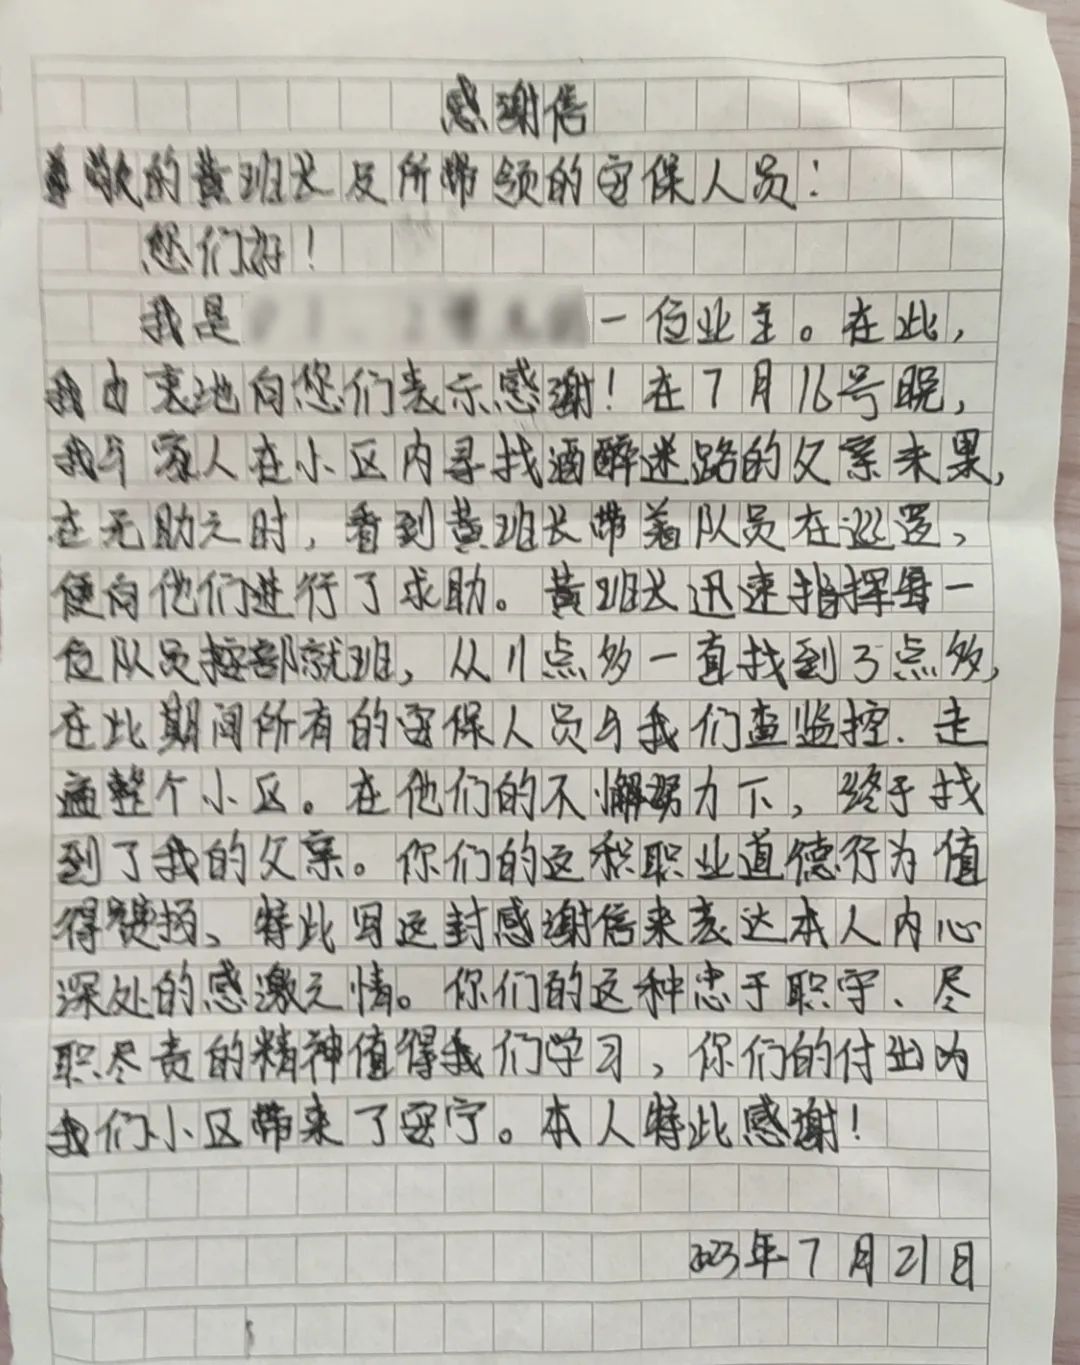 感谢信
尊敬的黄班长及所带领的安保人员：
您们好！
我是一位业主。在此，
我由衷地向您们表示感谢！在7月16号晚，
我与家人在小区内寻找酒醉迷路的父亲未果，
在无助之时，看到黄班长带着队员在巡逻，
便向他们进行了求助。黄班长迅速指挥每一
位队员按部就班，从11点多一直找到3点多，
在此期间所有的安保人员与我们查监控、走
遍整个小区。在他们的不懈努力下，终于找
到了我的父亲。你们的这种职业道德行为值
得赞扬、特此写这封感谢信来表达本人内心
深处的感激之情。你们的这种忠于职守、尽
职尽责的精神值得我们学习，你们的付出为
我们小区带来了安宁。本人特此感谢！
2023年7月21日